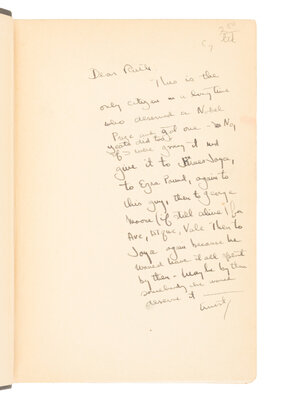 Dear Ruth
This is the
only citizen in a long time
who deserved a Nobel
Prize and got one - No,
Yeats did too
if I were giving it
give it to James Joyce,
to Ezra Pound, again to
this guy, then to George
Moore (if still alive) for
Ave, Vale Then to
Joyce again because he
would have it all spent
by then - maybe by then
somebody would
deserve it